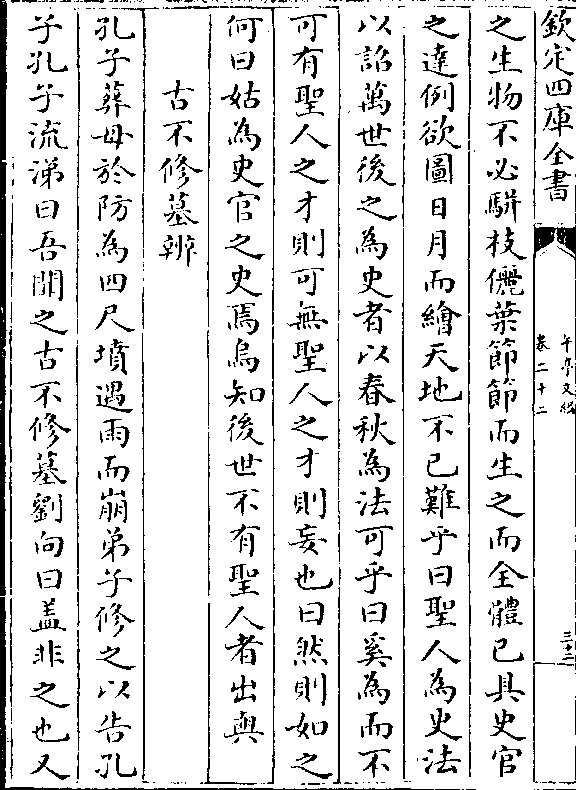 欽定四庫全書
午亭文編
卷二十二
三十二
之生物不必駢枝儷葉節節而生之而全體已具史官
之達例欲圖日月而繪天地不已難乎曰聖人為史法
以詔萬世後之為史者以春秋為法可乎曰奚為而不
可有聖人之才則可無聖人之才則妄也曰然則如之
何曰姑為史官之史焉烏知後世不有聖人者出與
古不修墓辨
孔子葬母於防為四尺墳遇雨而崩弟子修之以告孔
子孔子流涕曰吾聞之古不修墓劉向曰蓋非之也又